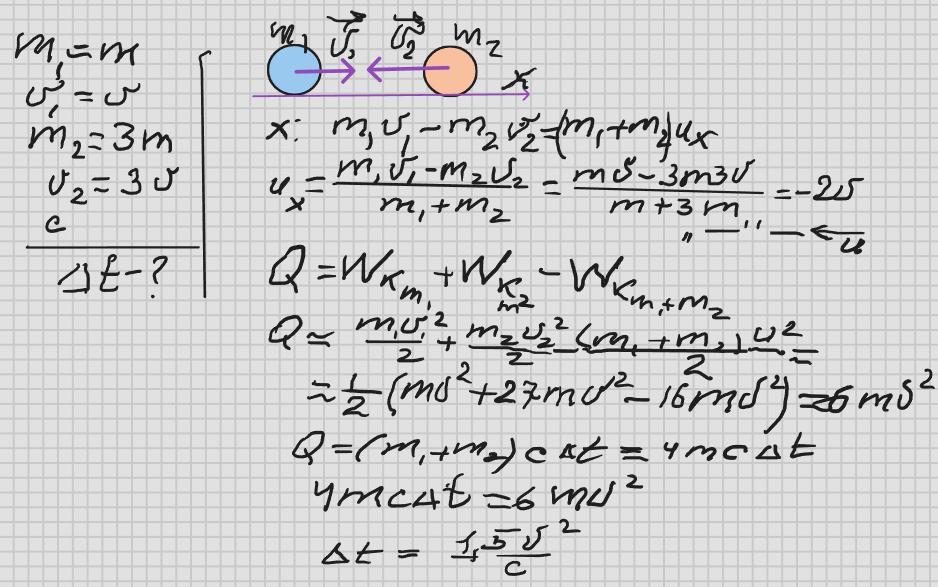 m₁ = m
υ₁ = υ
m₂ = 3m
υ₂ = 3υ
c
Δt - ?
m₁ υ₁ υ₂ m₂
x
x: m₁υ₁ - m₂υ₂ = (m₁ + m₂)uₓ
uₓ = (m₁υ₁ - m₂υ₂)/(m₁ + m₂) = (mυ - 3m3υ)/(m + 3m) = -2υ
„—" — ← u
Q = W_Km₁ + W_Km₂ - W_Km₁+m₂
Q = m₁υ₁²/2 + m₂υ₂²/2 - (m₁ + m₂)u²/2 =
= 1/2 (mυ² + 27mυ² - 16mυ²) = 6mυ²
Q = (m₁ + m₂)cΔt = 4mcΔt
4mcΔt = 6mυ²
Δt = 1,5υ²/c